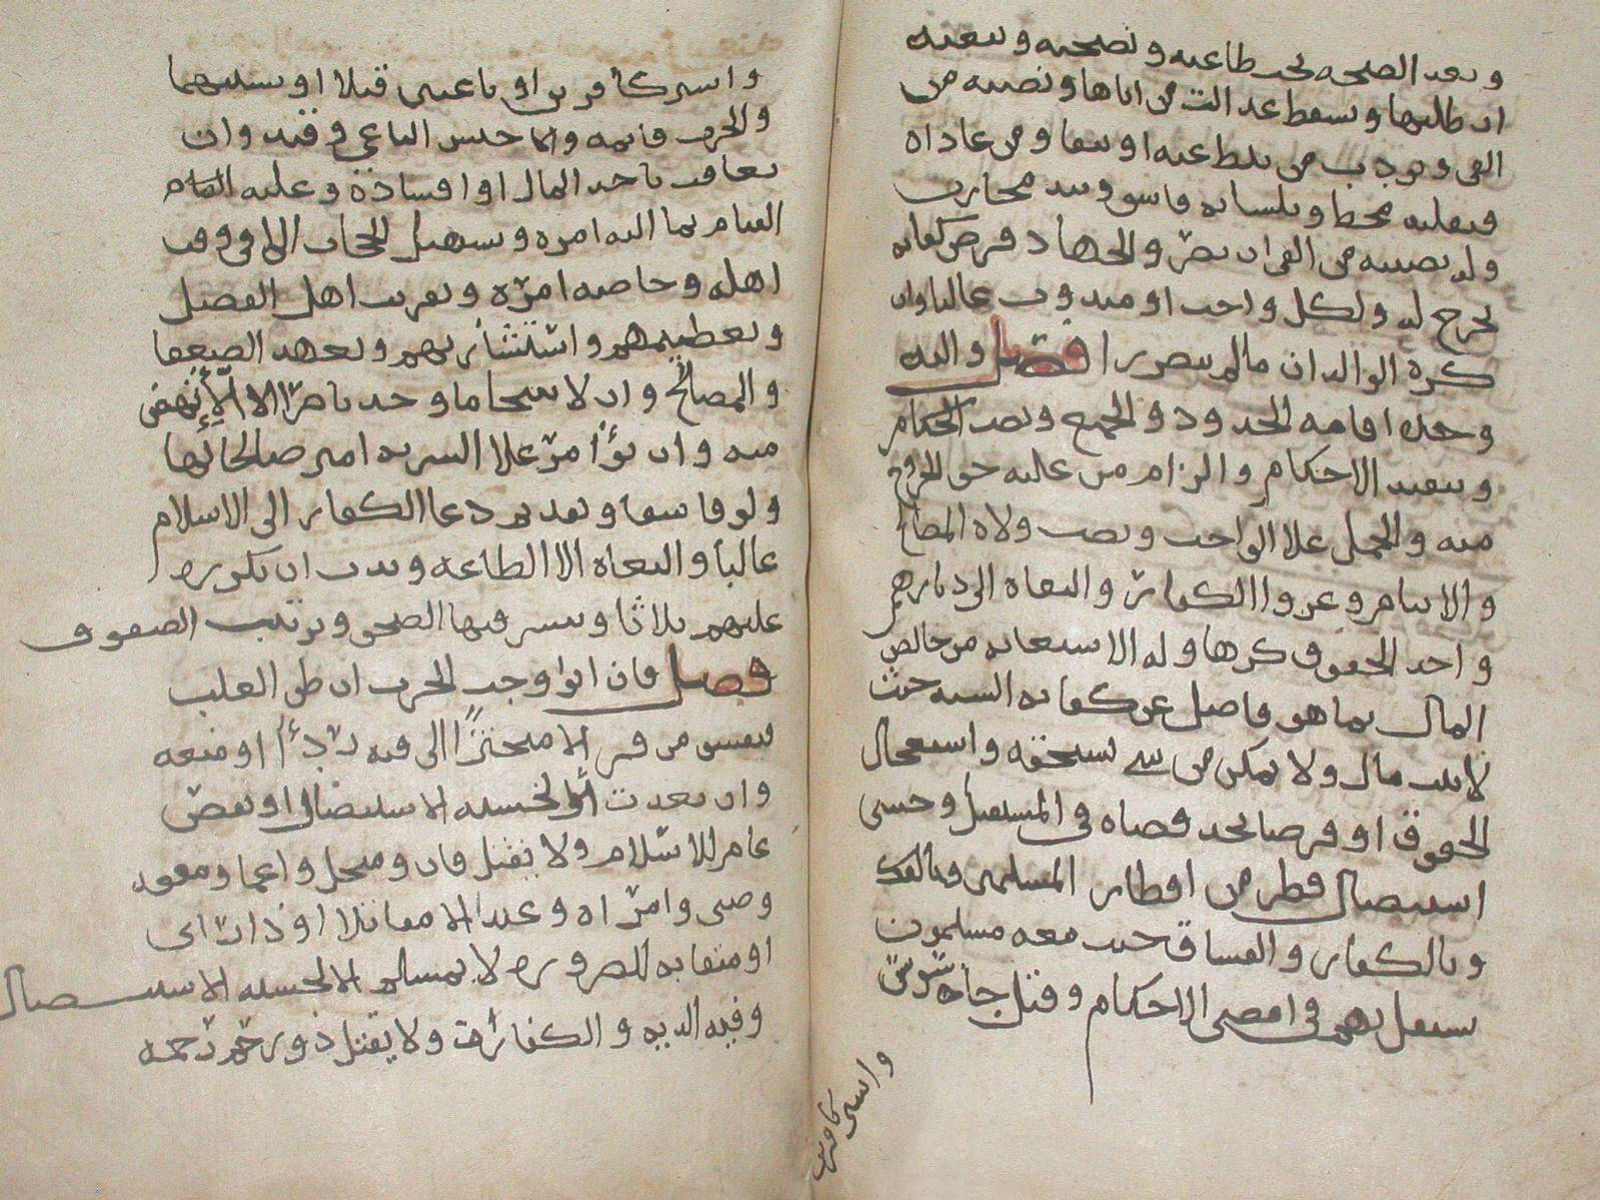 وبعد الصحه تجب طاعته ونصيحته وبيعته
ان طلبها وتسقط عدالت من اباها ونصيبه من
الفى ويودب من يثبط عنه او ينفا ومن عاداه
فبقلبه مخط وبلسانه فاسق وبيده محارب
وله نصيبه من الفى ان نصر والجهاد فرض كفايه
يخرج له ولكل واجب او مندوب غالبا وان
كره الوالدان مالم يتضررا فصل واليه
وحده اقامه الحدود والجمع ونصب الحكام
وتنفيذ الاحكام والزام من عليه حق الخروج
منه والحمل علا الواجب ونصب ولاه المصالح
والايتام وغزوا الكفار والبغاه الى ديارهم
واخذ الحقوق كرها وله الاستعانه من خالص
المال بما هو فاضل عن كفايه السنه حيث
لا بيت مال ولا يمكن من شي يستحقه واستعجال
الحقوق او قرضا يجد قضاه فى المستقبل وخشى
استيصال قطر من اقطار المسلمين فبالفك
وبالكفار والفساق حيث معه مسلمون
يستقل بهم فى امضى الاحكام وقتل جاسوس
واسير كافرين
واسير كافرين او باغيين قتلا او بسببهما
والحرب قائمه والا حبس الباغي وقيد وان
يعاقب باخذ المال او افساده وعليه القيام
القيام بما اليه امره وتسهيل الحجاب الا في وقت
اهله وخاصه امره وتقريب اهل الفضل
وتعظيمهم واستشارتهم وتعهد الضعفا
والمصالح وان لا يتنحا ما وجد ناصرا الا لانهض
منه وان يؤمر علا السريه امير صالحا لها
ولو فاسقا وتقديم دعا الكفار الى الاسلام
غالبا والبغاه الا الطاعه وندب ان يكرره
عليهم ثلاثا وينشر فيها الصحف ويرتب الصفوف
فصل فان ابوا وجب الحرب ان ظن الغلب
فيفسق من فر الا متحيزا الى فيه ردءا او منعه
وان بعدت او لخشيه الاستيصال او نقص
عام للاسلام ولا يقتل فان ومتخل واعما ومقعد
وصبى وامراه وعبد الا مقاتلا او ذا راى
او متقا به للضروره لا بمسلم الا لخشيه الاستيصال
وفيه الديه والكفارة ولا يقتل ذو رحم رحمه